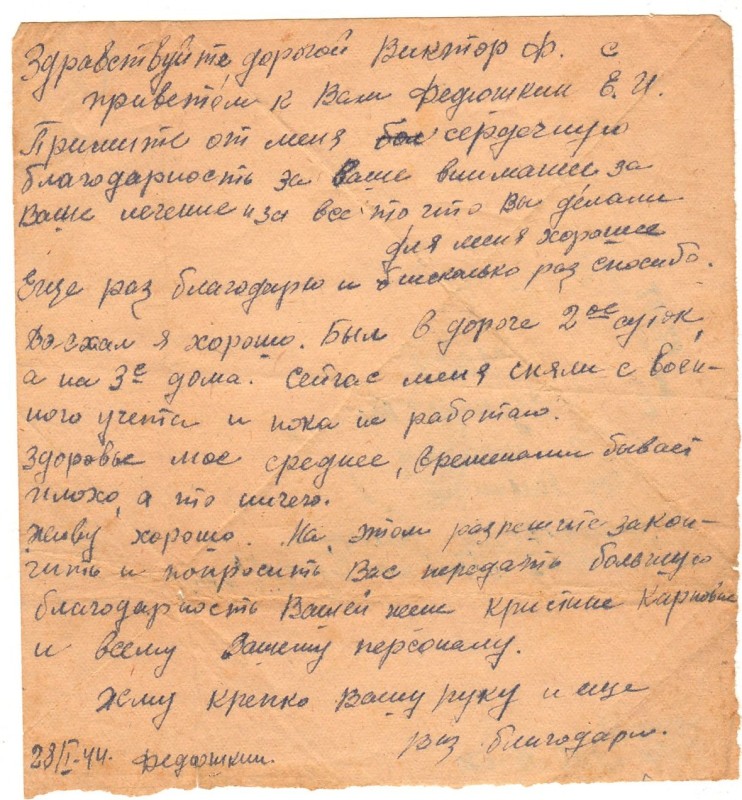 Здравствуйте дорогой Виктор Ф. с
приветом к Вам Федюшкин Е. И.
Примите от меня сердечную
благодарность за Ваше внимание за
Ваше лечение и за все то что Вы делали
для меня хорошее
Еще раз благодарю и бисколько раз спосибо.
Доехал я хорошо. Был в дороге 2ое суток,
а на 3е дома. Сейчас меня сняли с воен-
ного учета и пока не работаю.
Здоровье мое среднее, временами бывает
плохо, а то ничего.
Живу хорошо. На этом разрешите закон-
чить и попросить Вас передать большую
благодарность Вашей жене Кристине Карповне
и всему Вашему персоналу.
Жму крепко Вашу руку и еще
раз благодарю.
28/I-44. Федюшкин.